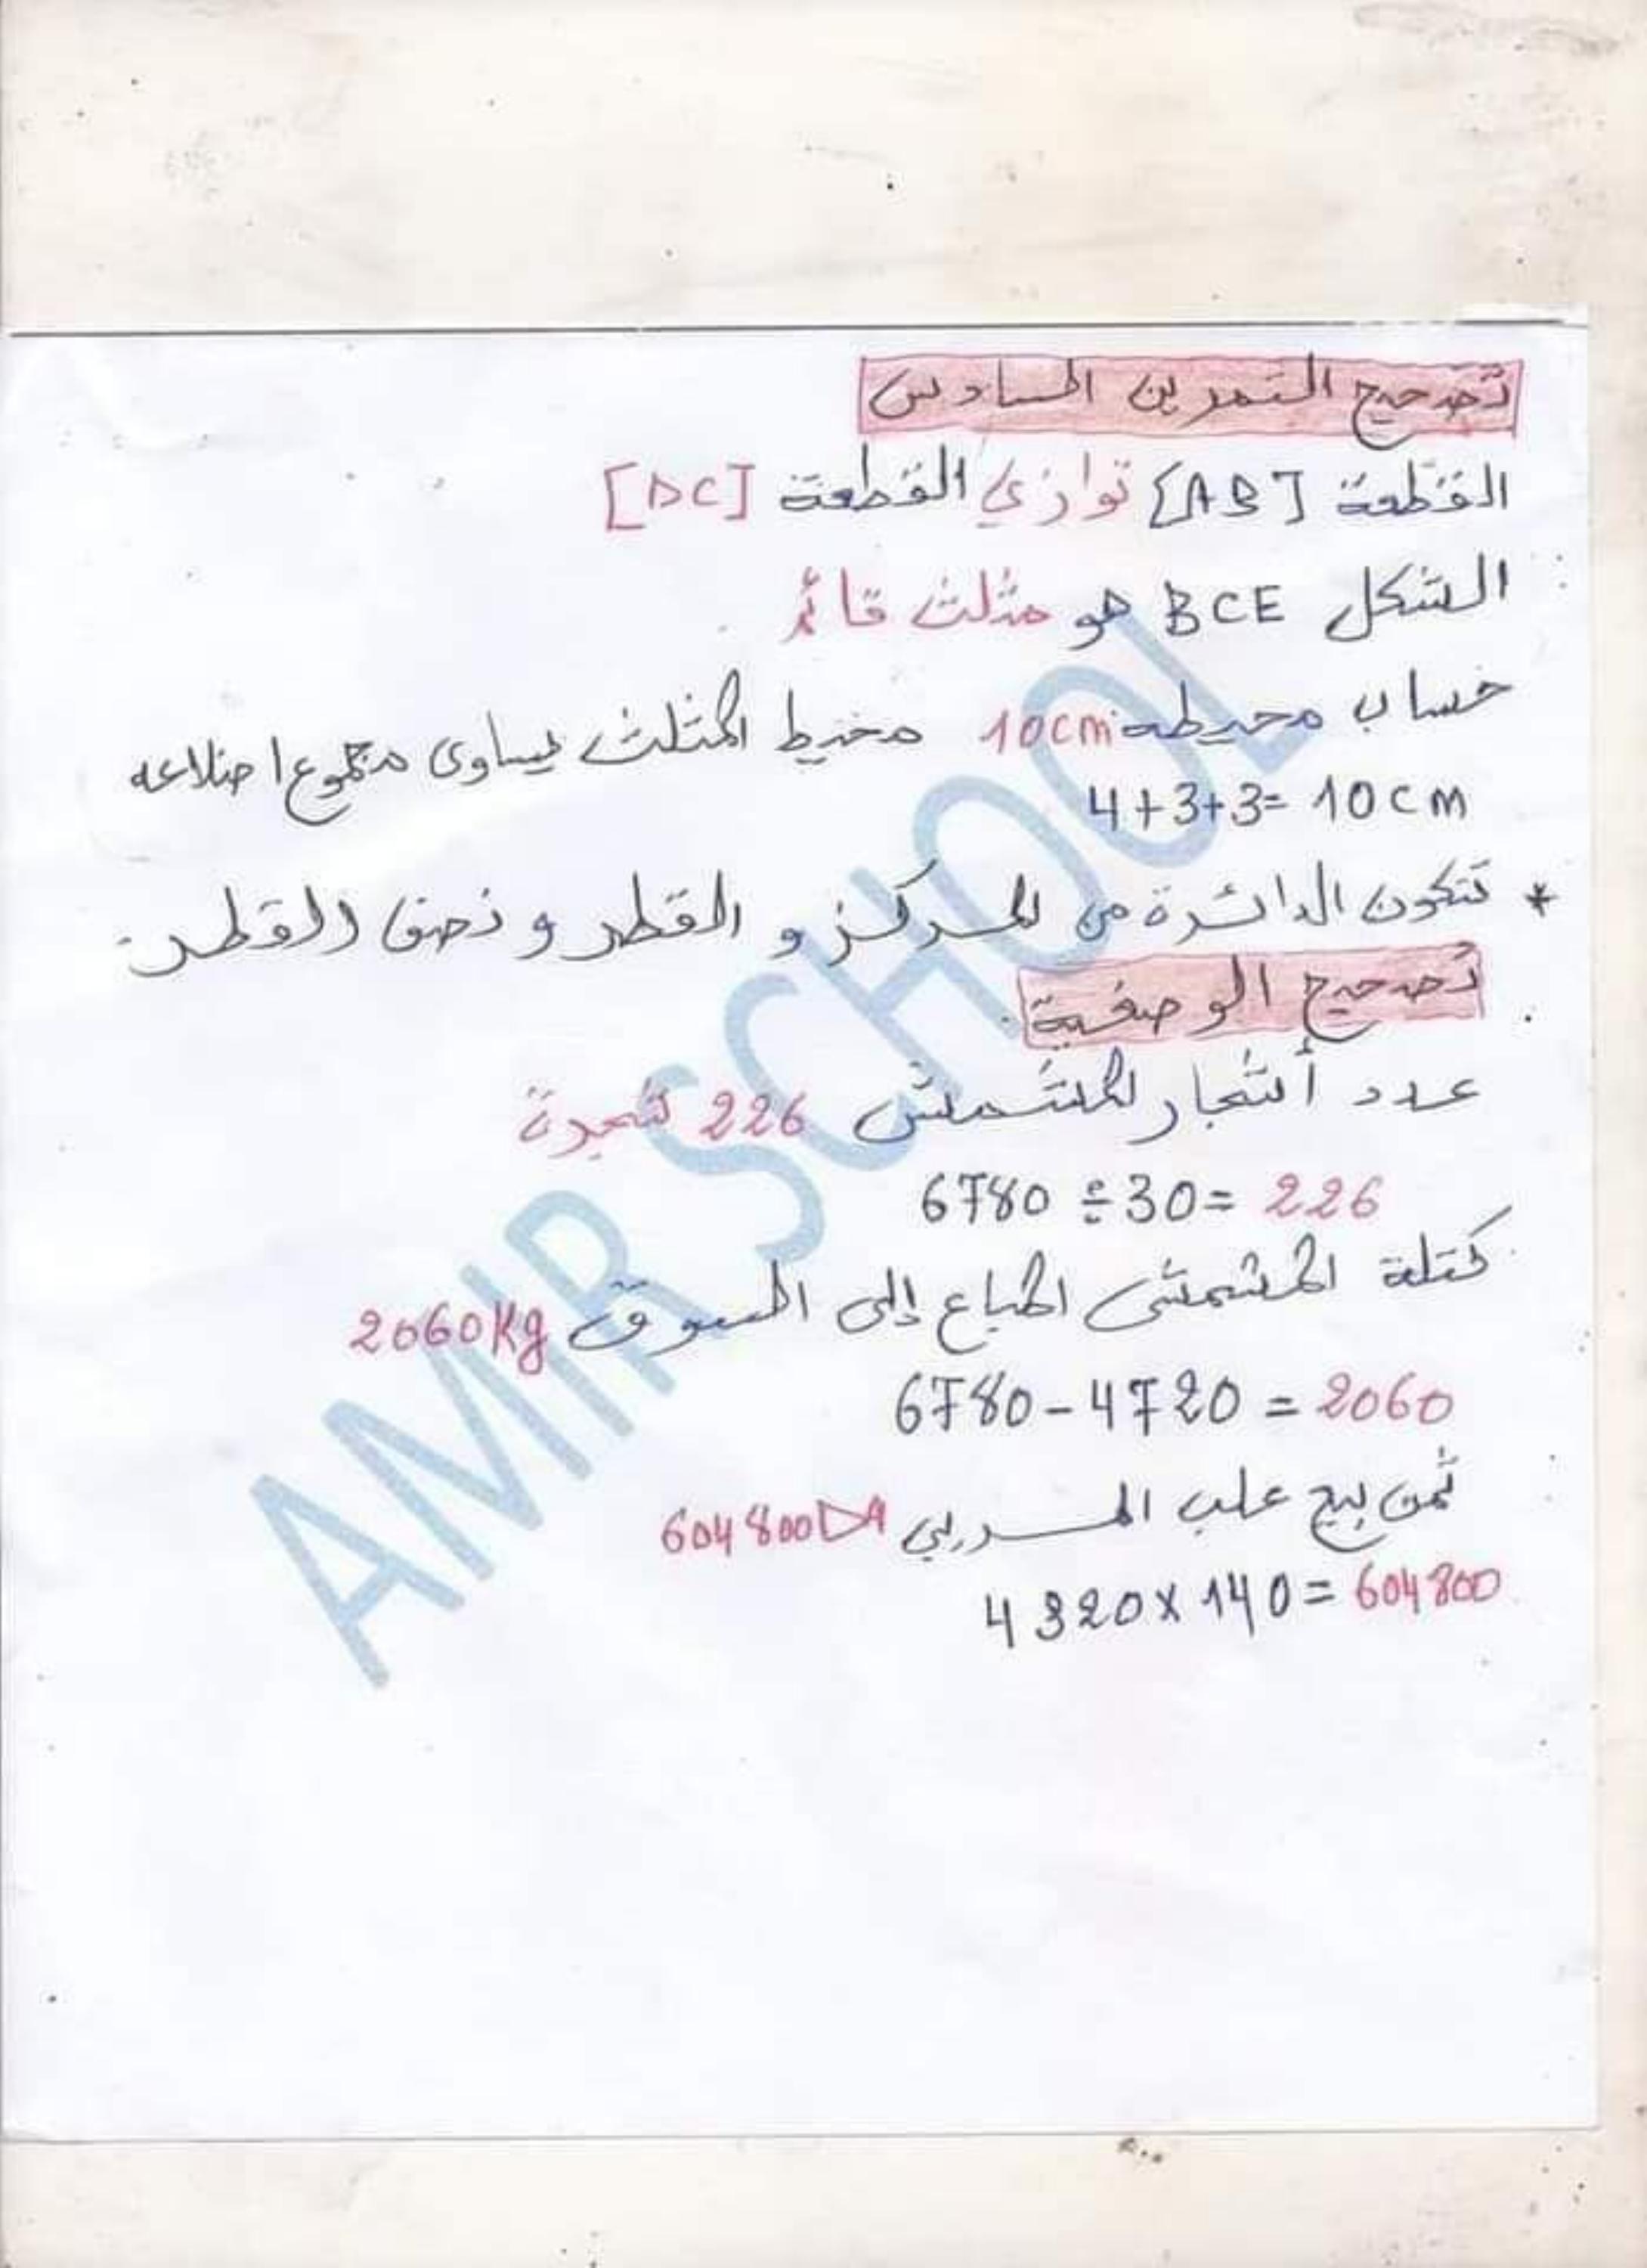 تصحيح التمرين السادس
القطعة [AB] توازي القطعة [DC]
الشكل BCE هو مثلث قائم
حساب محيطه 10cm محيط المثلث يساوي مجموع اضلاعه
4+3+3= 10cm
* تتكون الدائرة من المركز و القطر و نصف القطر.
تصحيح الوضعية.
عدد أشجار المشمش 226 شجرة
6780 ÷ 30 = 226
كتلة المشمش المباع إلى السوق 2060Kg
6780 - 4720 = 2060
ثمن بيع علب المربى 604800DA
4320 x 140 = 604800
AMIR SCHOOL